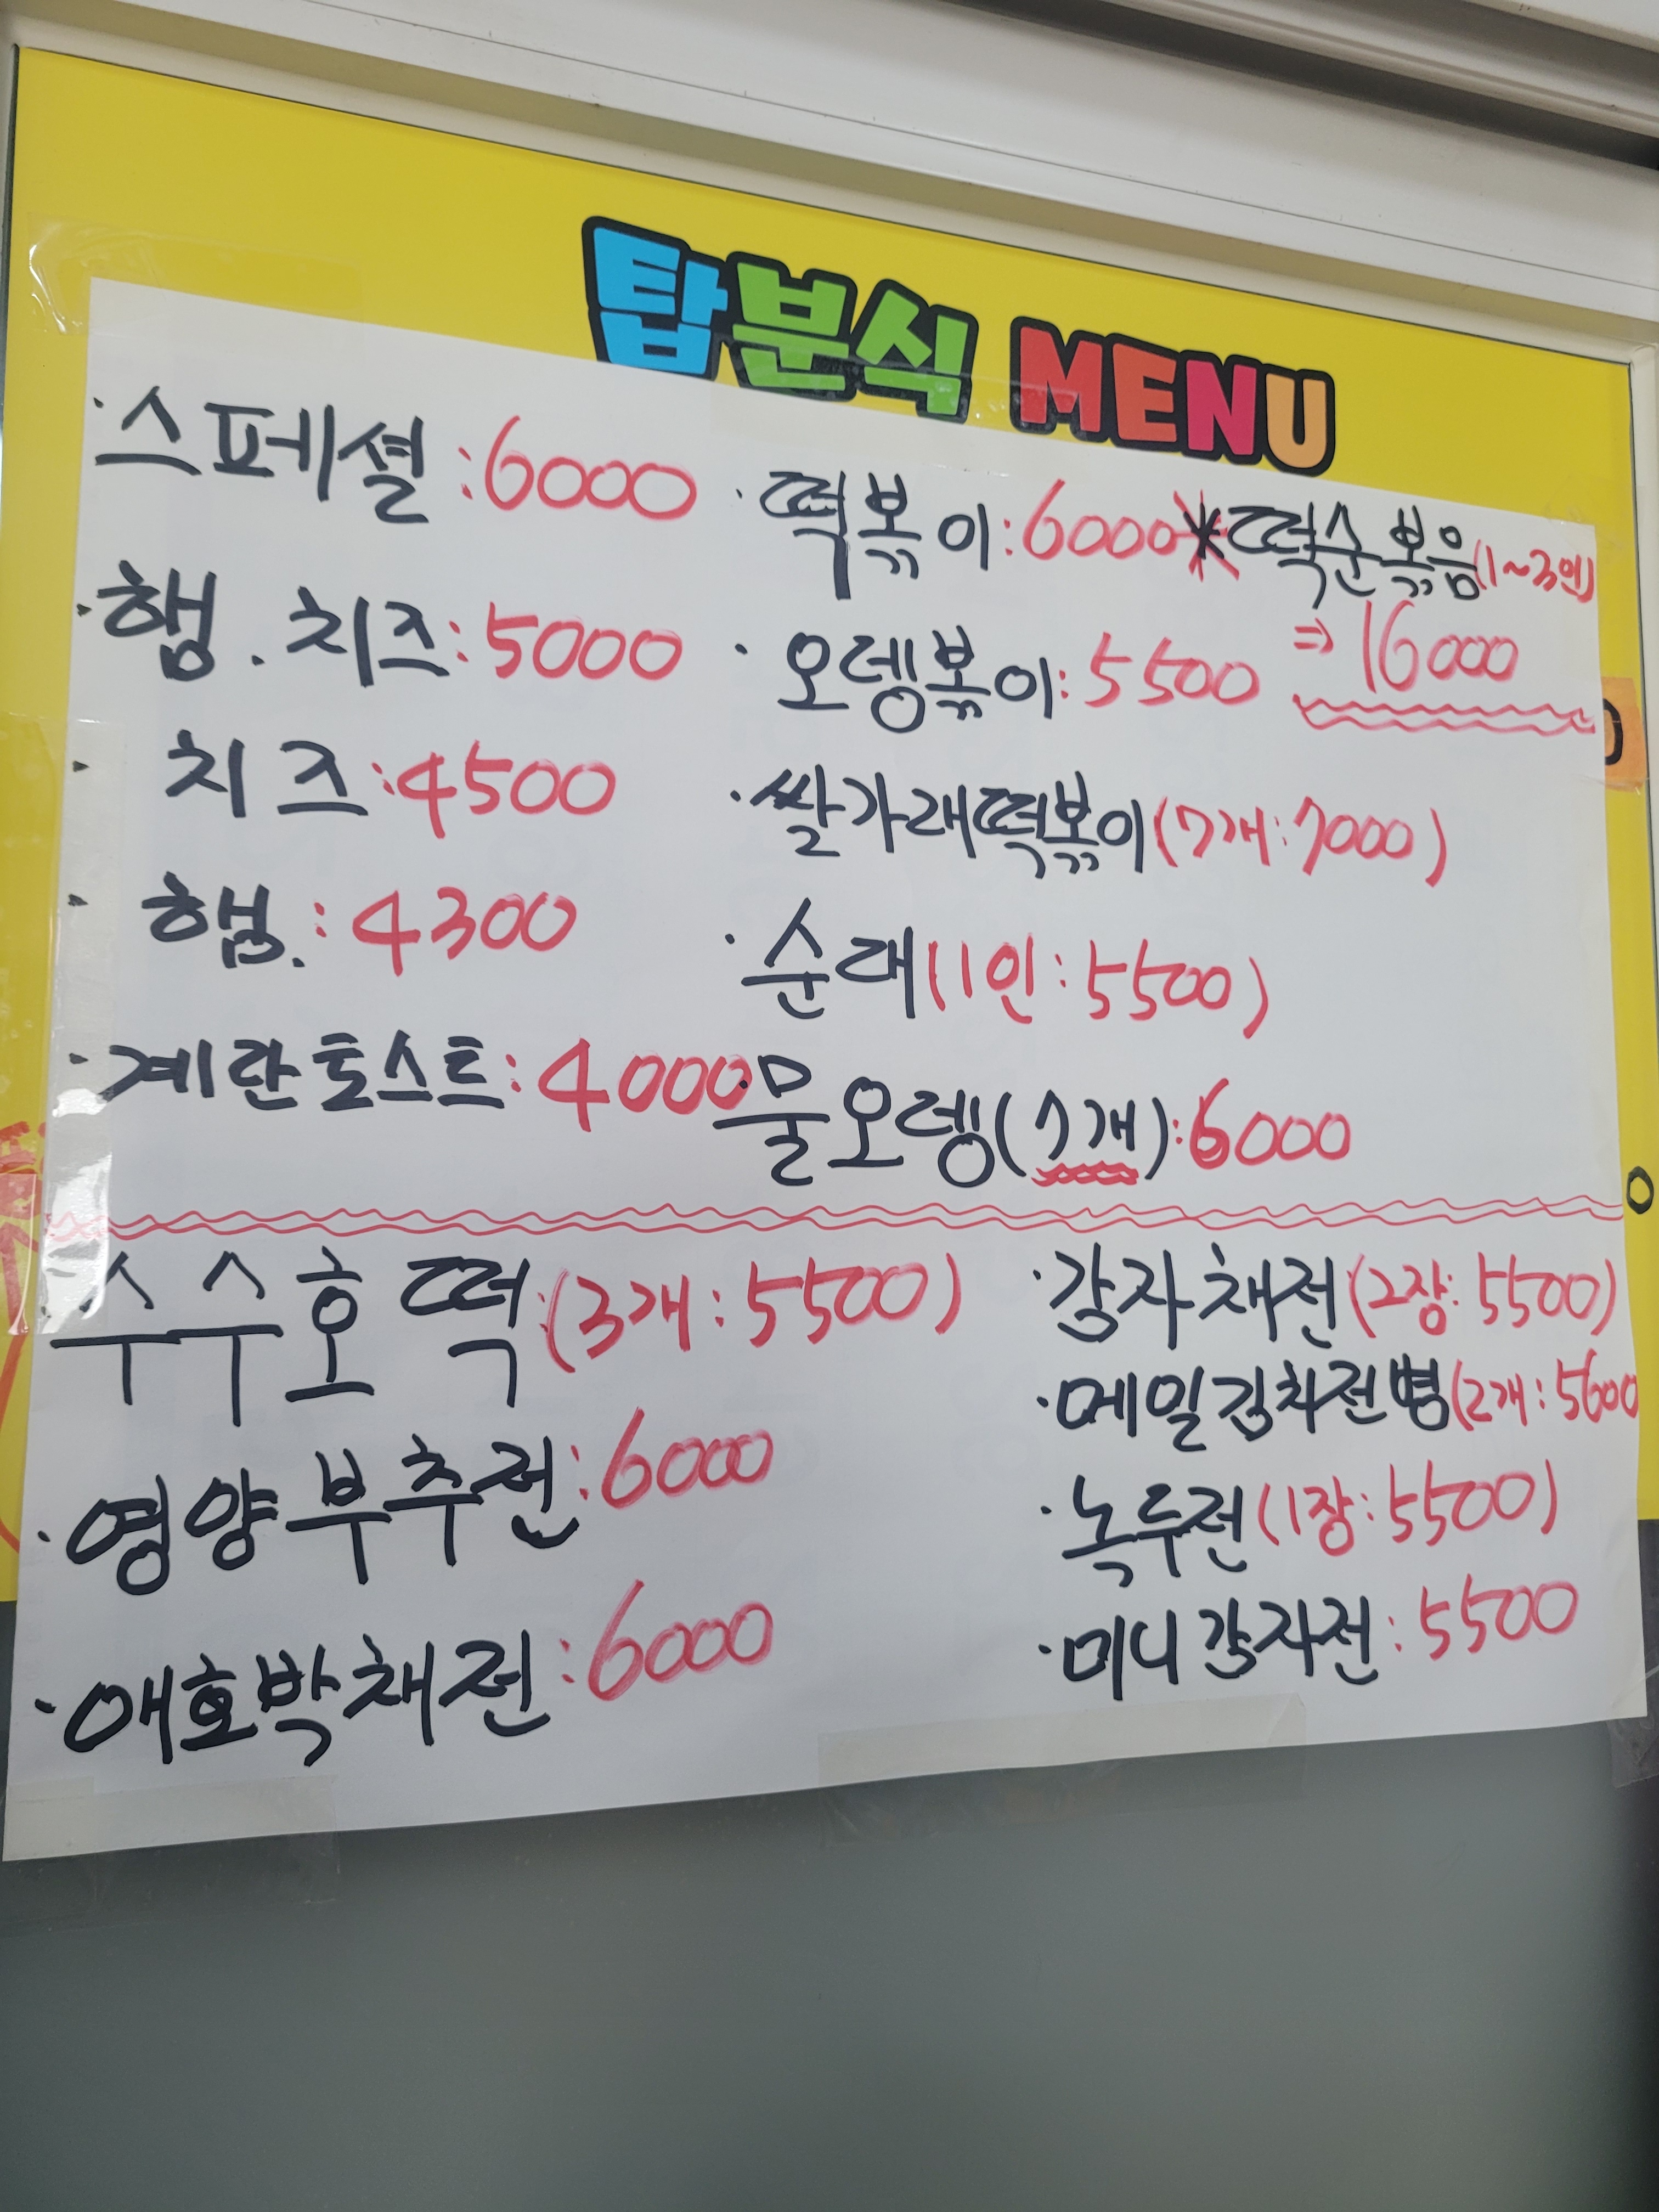 탑분식 MENU
· 스페셜 : 6000
· 햄. 치즈 : 5000
· 치즈 : 4500
· 햄. : 4300
· 계란토스트 : 4000
· 떡볶이 : 6000
· 오뎅볶이 : 5500
· 쌀가래떡볶이 (7개 : 7000)
· 순대 (1인 : 5500)
· 물오뎅 (7개) : 6000
* 떡순볶음 (1~3인)
⇒ 16000
· 수수호떡 : (3개 : 5500)
· 영양부추전 : 6000
· 애호박채전 : 6000
· 감자채전 (2장 : 5500)
· 메밀김치전병 (2개 : 5600
· 녹두전 (1장 : 5500)
· 미니감자전 : 5500